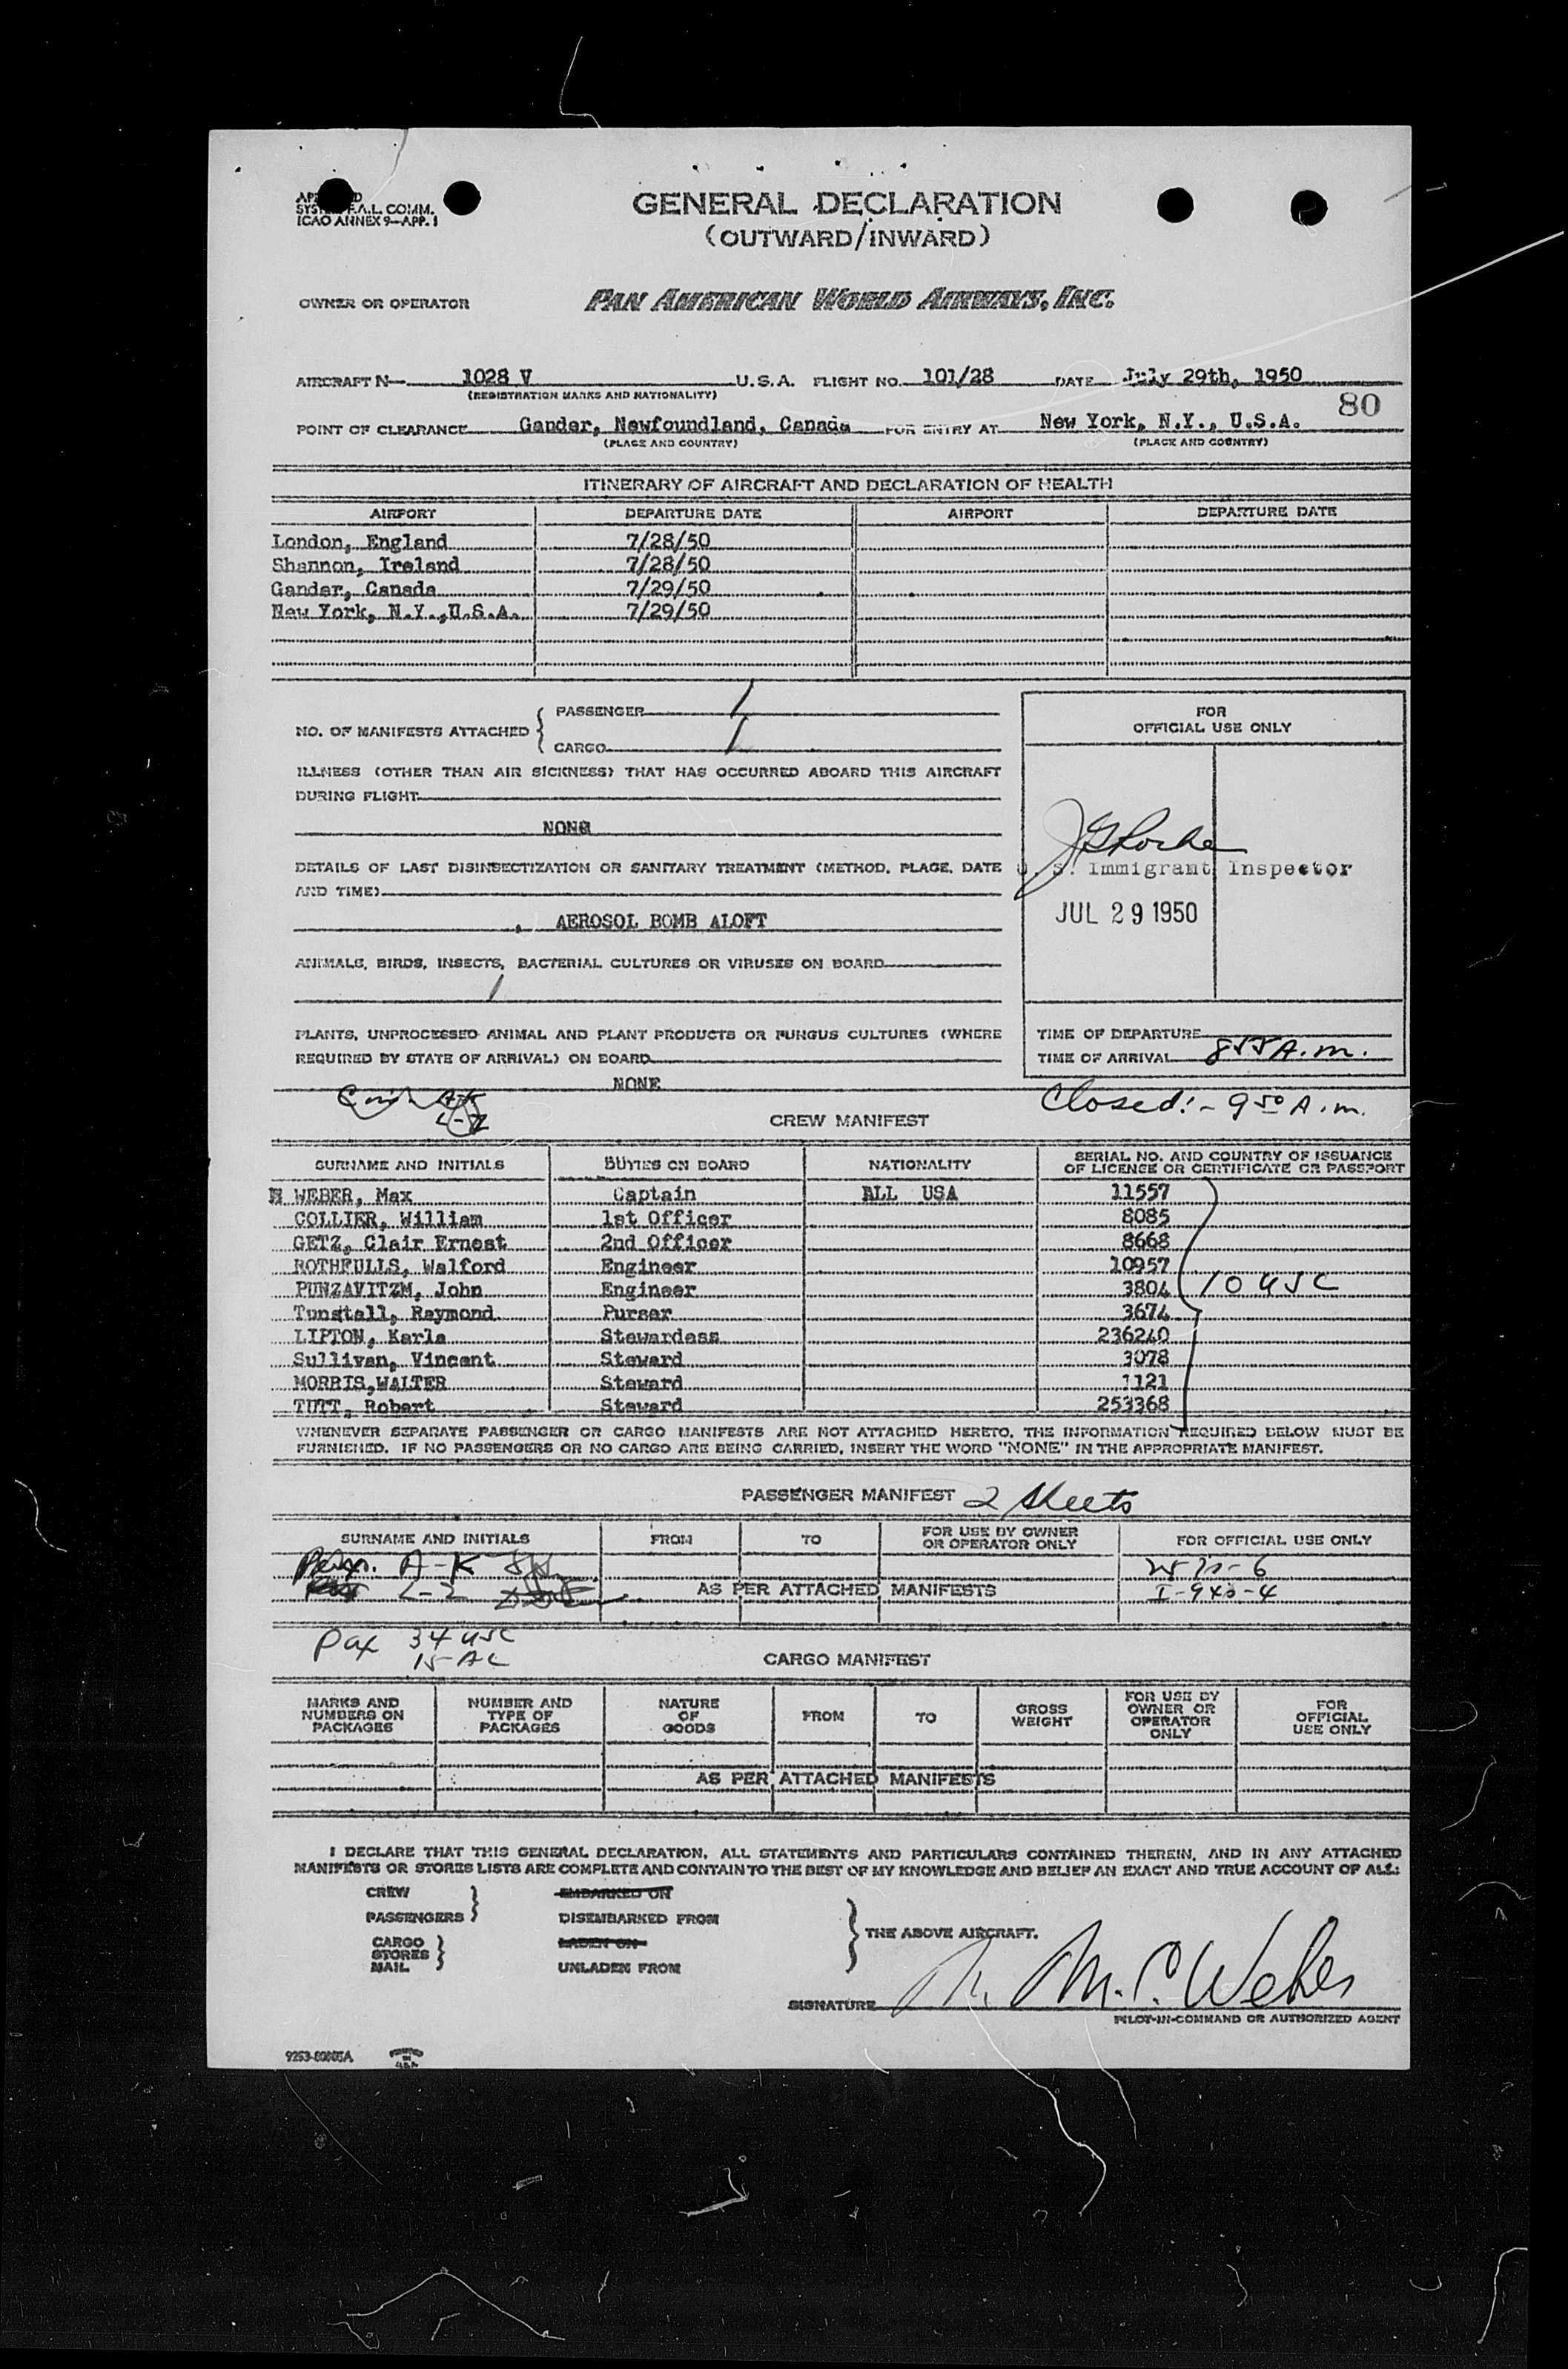 GENERAL DECLARATION
(OUTWARD/INWARD)
F.A.L. COMM.
ICAO ANNEX 9—APP. 1
OWNER OR OPERATOR PAN AMERICAN WORLD AIRWAYS, INC.
AIRCRAFT N— 1028 V U.S.A. FLIGHT NO. 101/28 DATE July 29th, 1950
(REGISTRATION MARKS AND NATIONALITY)
80
POINT OF CLEARANCE Gander, Newfoundland, Canada FOR ENTRY AT New York, N.Y., U.S.A.
(PLACE AND COUNTRY) (PLACE AND COUNTRY)
ITINERARY OF AIRCRAFT AND DECLARATION OF HEALTH
AIRPORT DEPARTURE DATE AIRPORT DEPARTURE DATE
London, England 7/28/50
Shannon, Ireland 7/28/50
Gander, Canada 7/29/50
New York, N.Y.,U.S.A. 7/29/50
NO. OF MANIFESTS ATTACHED { PASSENGER 1
CARGO 1
FOR
OFFICIAL USE ONLY
ILLNESS (OTHER THAN AIR SICKNESS) THAT HAS OCCURRED ABOARD THIS AIRCRAFT
DURING FLIGHT
NONE
DETAILS OF LAST DISINSECTIZATION OR SANITARY TREATMENT (METHOD, PLACE, DATE
AND TIME)
U. S. Immigrant Inspector
JUL 29 1950
AEROSOL BOMB ALOFT
ANIMALS, BIRDS, INSECTS, BACTERIAL CULTURES OR VIRUSES ON BOARD
PLANTS, UNPROCESSED ANIMAL AND PLANT PRODUCTS OR FUNGUS CULTURES (WHERE
REQUIRED BY STATE OF ARRIVAL) ON BOARD
NONE
TIME OF DEPARTURE
TIME OF ARRIVAL 855 A.m.
Closed:- 9 50 A.m.
CREW MANIFEST
SURNAME AND INITIALS DUTIES ON BOARD NATIONALITY SERIAL NO. AND COUNTRY OF ISSUANCE
OF LICENSE OR CERTIFICATE OR PASSPORT
WEBER, Max Captain ALL USA 11557
COLLIER, William 1st Officer 8085
GETZ, Clair Ernest 2nd Officer 8668
ROTHFULLS, Walford Engineer 10957
PUNZAVITZM, John Engineer 3804 10 USC
Tunstall, Raymond Purser 3674
LIPTON, Karla Stewardess 236240
Sullivan, Vincent Steward 3078
MORRIS,WALTER Steward 1121
TUTT, Robert Steward 253368
WHENEVER SEPARATE PASSENGER OR CARGO MANIFESTS ARE NOT ATTACHED HERETO, THE INFORMATION REQUIRED BELOW MUST BE
FURNISHED. IF NO PASSENGERS OR NO CARGO ARE BEING CARRIED, INSERT THE WORD "NONE" IN THE APPROPRIATE MANIFEST.
PASSENGER MANIFEST 2 sheets
SURNAME AND INITIALS FROM TO FOR USE BY OWNER
OR OPERATOR ONLY FOR OFFICIAL USE ONLY
A-K
L-Z AS PER ATTACHED MANIFESTS
Pax 34 USC
15 AC
CARGO MANIFEST
MARKS AND
NUMBERS ON
PACKAGES
NUMBER AND
TYPE OF
PACKAGES
NATURE
OF
GOODS
FROM
TO
GROSS
WEIGHT
FOR USE BY
OWNER OR
OPERATOR
ONLY
FOR
OFFICIAL
USE ONLY
AS PER ATTACHED MANIFESTS
I DECLARE THAT THIS GENERAL DECLARATION, ALL STATEMENTS AND PARTICULARS CONTAINED THEREIN, AND IN ANY ATTACHED
MANIFESTS OR STORES LISTS ARE COMPLETE AND CONTAIN TO THE BEST OF MY KNOWLEDGE AND BELIEF AN EXACT AND TRUE ACCOUNT OF ALL:
CREW EMBARKED ON
PASSENGERS } DISEMBARKED FROM
THE ABOVE AIRCRAFT.
CARGO LADEN ON
STORES }
MAIL UNLADEN FROM
SIGNATURE M. P. Weber
PILOT-IN-COMMAND OR AUTHORIZED AGENT